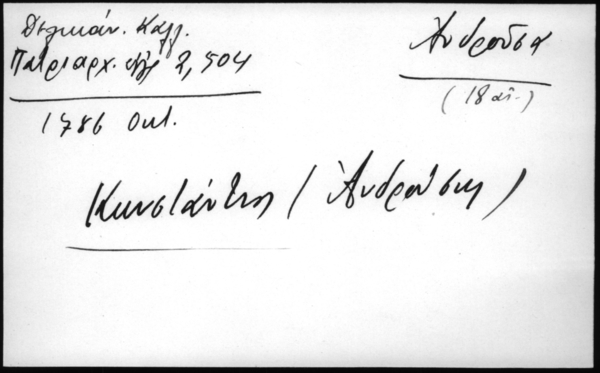 Δελικάν. Καλλ.
Πατριαρχ. Εγγρ 2, 504
1786 Οκτ.
Ἀνδροῦσα
(18 αἰ.)
Κωνστάντιος (Ἀνδρούσης)